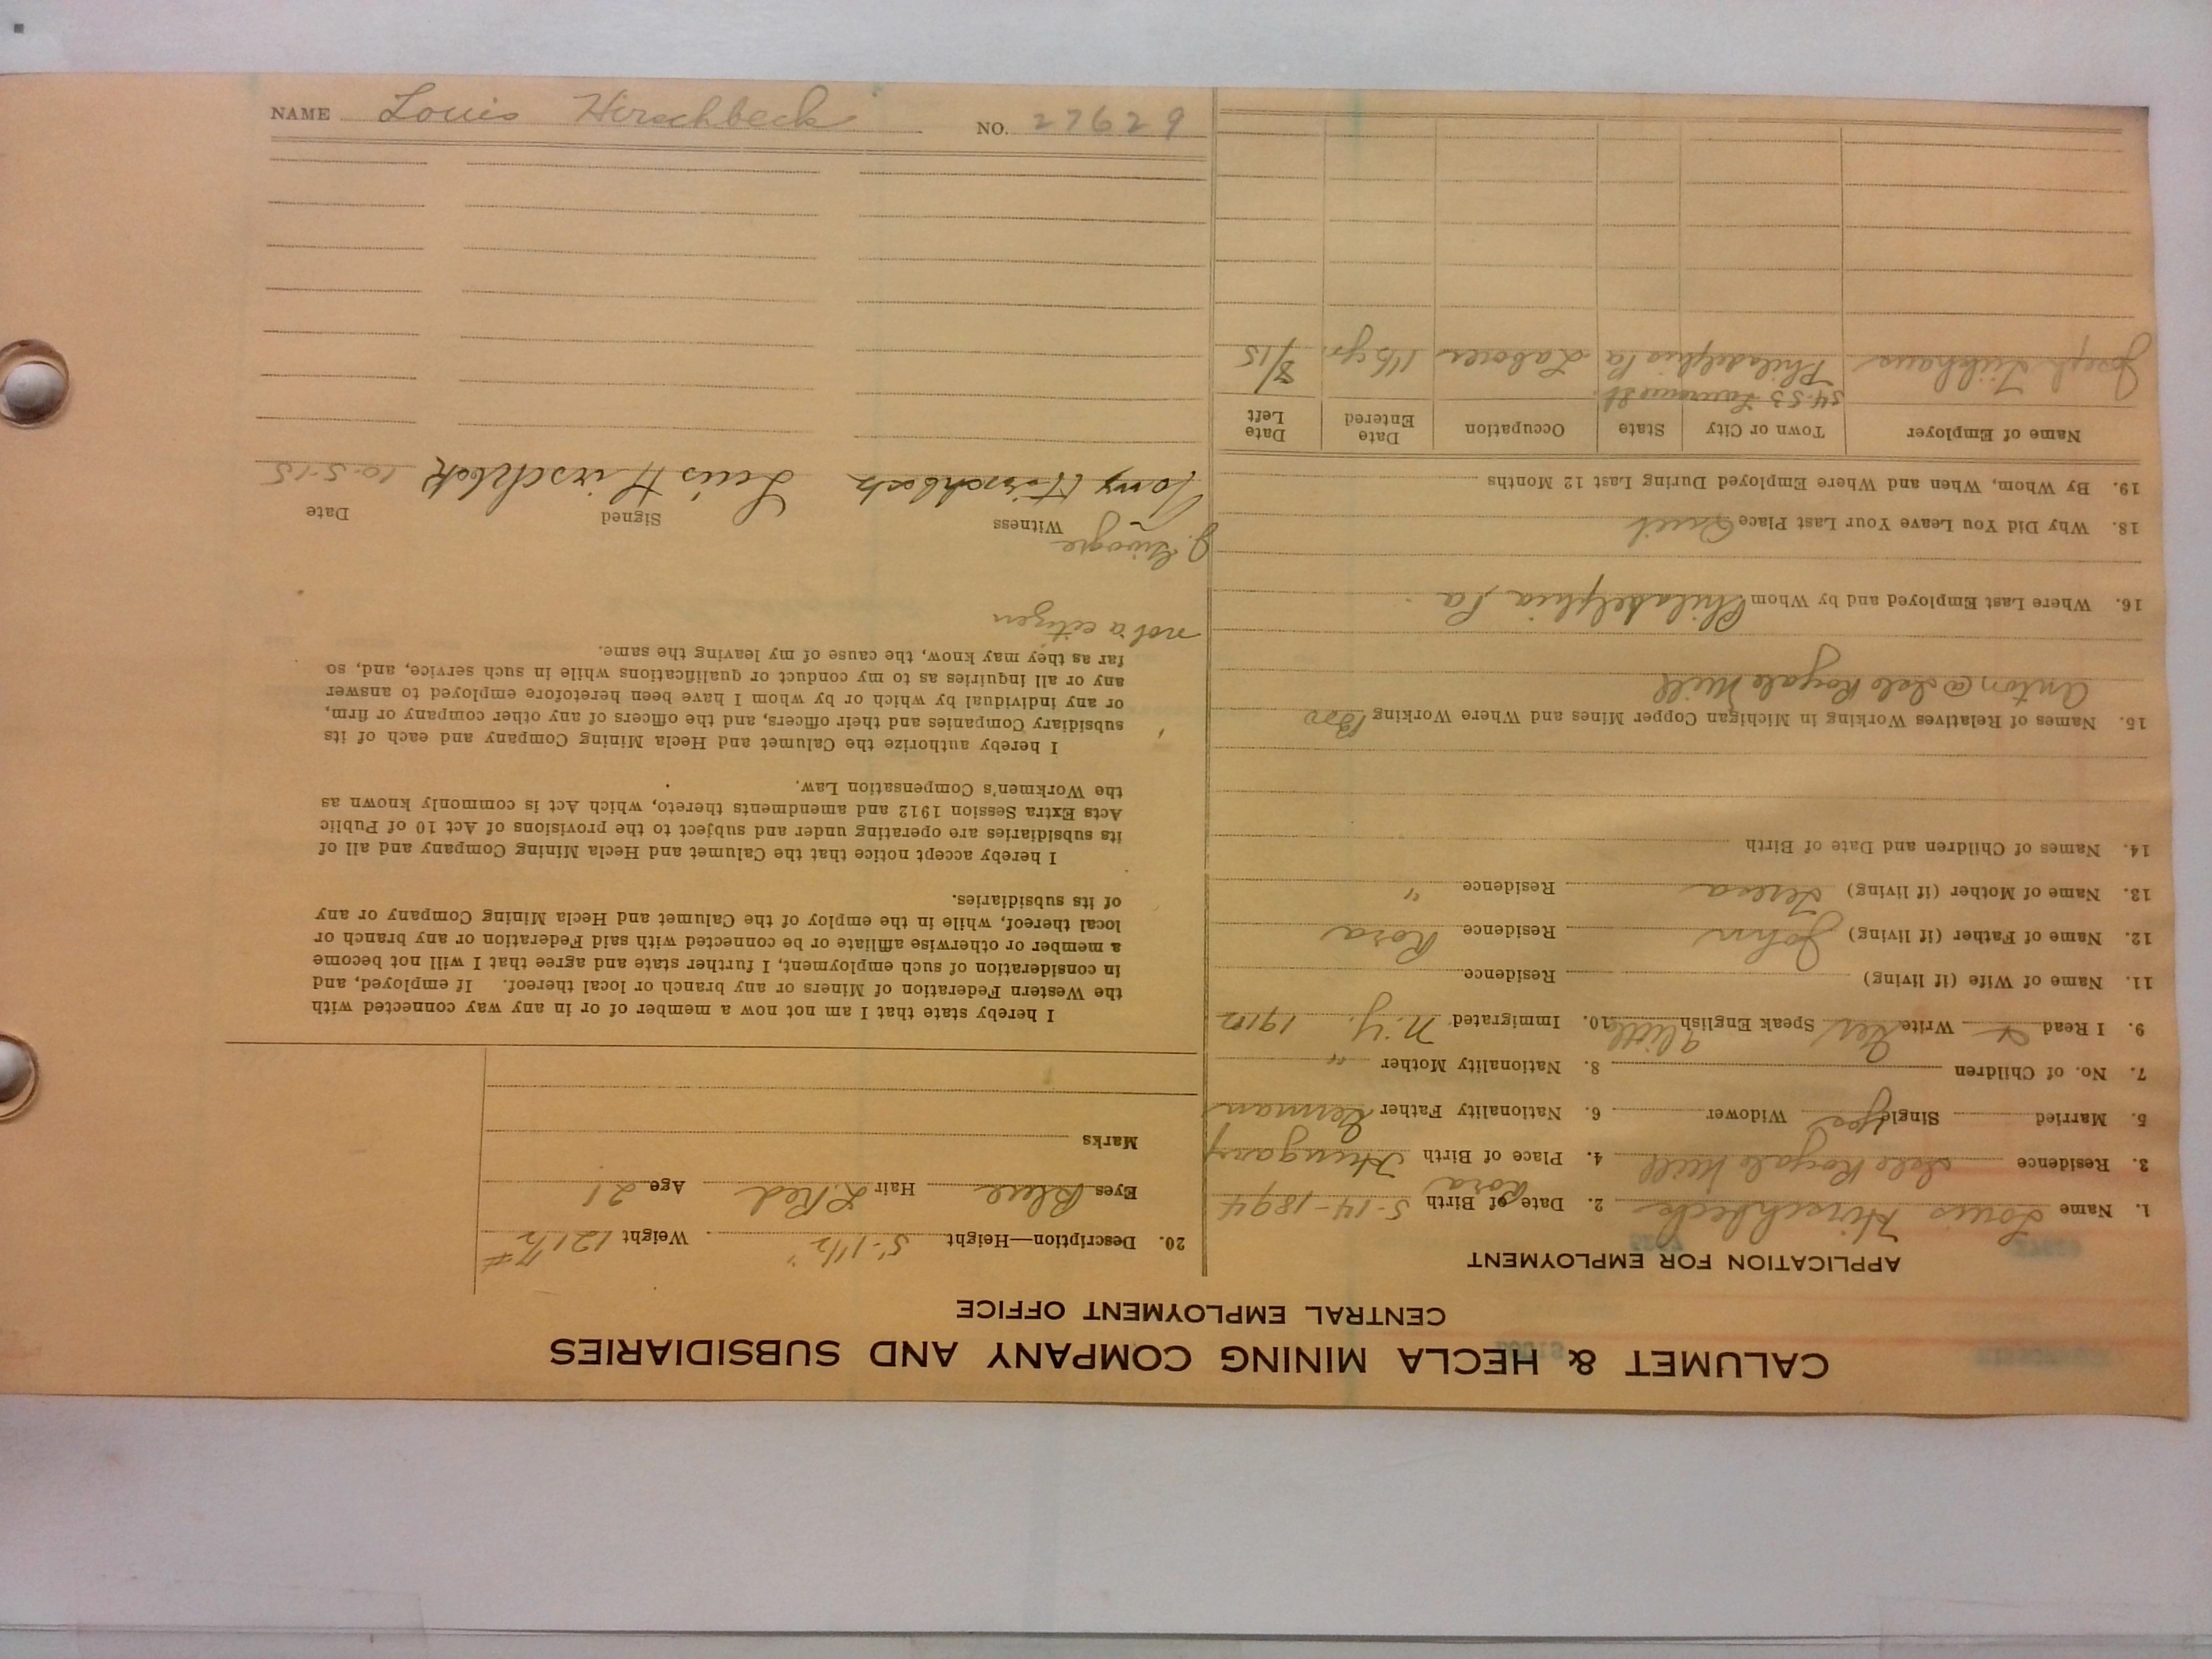 CALUMET & HECLA MINING COMPANY AND SUBSIDIARIES
CENTRAL EMPLOYMENT OFFICE
APPLICATION FOR EMPLOYMENT
1. Name Louis Hirschbeck 2. Date of Birth 5-14-1894
Kora
3. Residence Isle Royale Mill 4. Place of Birth Hungary
5. Married Single yes Widower 6. Nationality Father German
7. No. of Children 8. Nationality Mother "
9. I Read & Write Yes Speak English little 10. Immigrated N.Y. 1912
11. Name of Wife (if living) Residence
12. Name of Father (if living) John Residence Kora
13. Name of Mother (if living) Residence "
14. Names of Children and Date of Birth
15. Names of Relatives Working in Michigan Copper Mines and Where Working Bro
Anton @ Isle Royale Mill
16. Where Last Employed and by Whom Philadelphia Pa
18. Why Did You Leave Your Last Place Quit
19. By Whom, When and Where Employed During Last 12 Months
Name of Employer Town or City State Occupation Date Entered Date Left
5453 St.
Joseph Philadelphia Pa Laborer 1½ yr. 8/15
20. Description—Height 5'-1½" Weight 121½ #
Eyes Blue Hair L. Red Age 21
Marks
I hereby state that I am not now a member of or in any way connected with
the Western Federation of Miners or any branch or local thereof. If employed, and
in consideration of such employment, I further state and agree that I will not become
a member or otherwise affiliate or be connected with said Federation or any branch or
local thereof, while in the employ of the Calumet and Hecla Mining Company or any
of its subsidiaries.
I hereby accept notice that the Calumet and Hecla Mining Company and all of
its subsidiaries are operating under and subject to the provisions of Act 10 of Public
Acts Extra Session 1912 and amendments thereto, which Act is commonly known as
the Workmen's Compensation Law.
I hereby authorize the Calumet and Hecla Mining Company and each of its
subsidiary Companies and their officers, and the officers of any other company or firm,
or any individual by which or by whom I have been heretofore employed to answer
any or all inquiries as to my conduct or qualifications while in such service, and, so
far as they may know, the cause of my leaving the same.
not a citizen
Witness Signed Date
Tony Hirschbeck Louis Hirschbeck 10-5-15
NAME Louis Hirschbeck NO. 27629